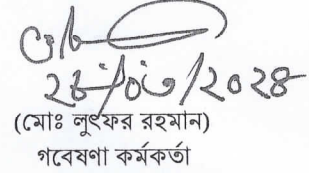 ২৮/০৩/২০২৪
(মোঃ লুৎফর রহমান)
গবেষণা কর্মকর্তা